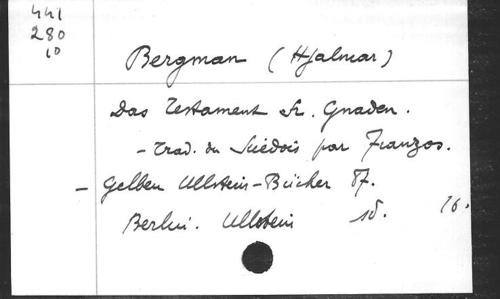 441
280
10
Bergman (Hjalmar)
Das Testament Sr. Gnaden.
- Trad. du Suédois par Franzos.
- Gelben Ullstein-Bücher 87.
Berlin. Ullstein sd. 16.